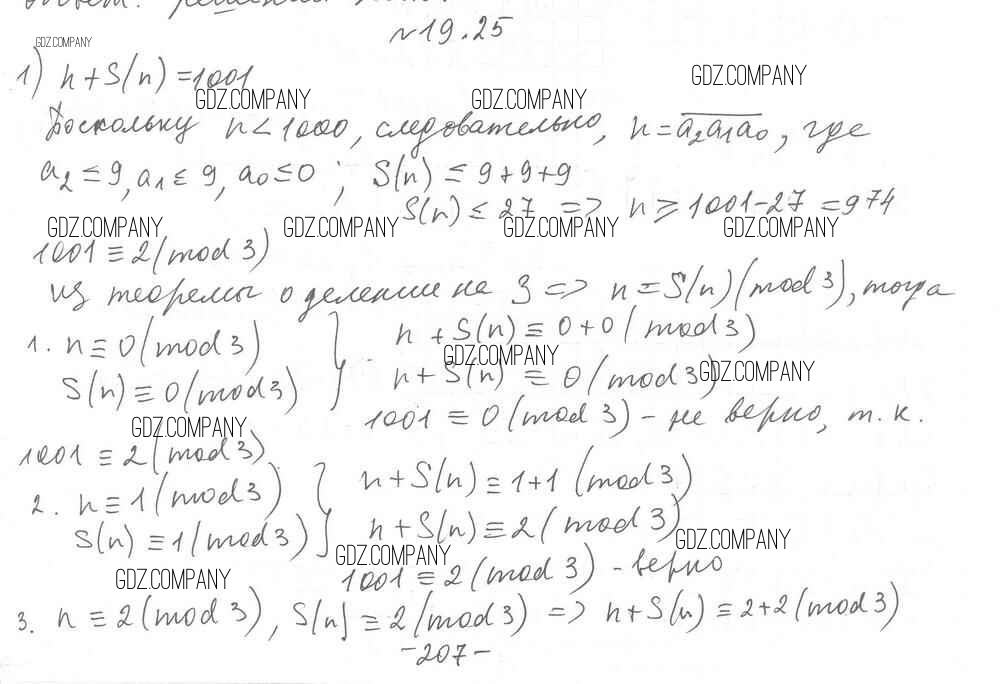 №19.25
GDZ.COMPANY
1) n+S(n)=1001
GDZ.COMPANY
GDZ.COMPANY GDZ.COMPANY
Поскольку n<1000, следовательно, n=a₂a₁a₀, где
a₂≤9, a₁≤9, a₀≤0 ; S(n) ≤ 9+9+9
S(n) ≤ 27 => n ≥ 1001-27 = 974
GDZ.COMPANY GDZ.COMPANY GDZ.COMPANY GDZ.COMPANY
1001 ≡ 2(mod 3)
из теоремы о делении на 3 => n = S(n)(mod 3), тогда
1. n≡0(mod 3) } n+S(n) ≡ 0+0(mod 3)
GDZ.COMPANY
S(n) ≡ 0(mod 3) n+S(n) ≡ 0(mod 3)
GDZ.COMPANY
1001 ≡ 0(mod 3) - не верно, т.к.
GDZ.COMPANY
1001 ≡ 2(mod 3)
2. n≡1(mod 3) } n+S(n) ≡ 1+1 (mod 3)
S(n) ≡ 1(mod 3) n+S(n) ≡ 2(mod 3)
GDZ.COMPANY GDZ.COMPANY
1001 ≡ 2(mod 3) - верно
GDZ.COMPANY
3. n ≡ 2(mod 3), S(n) ≡ 2(mod 3) => n+S(n) ≡ 2+2(mod 3)
-207-